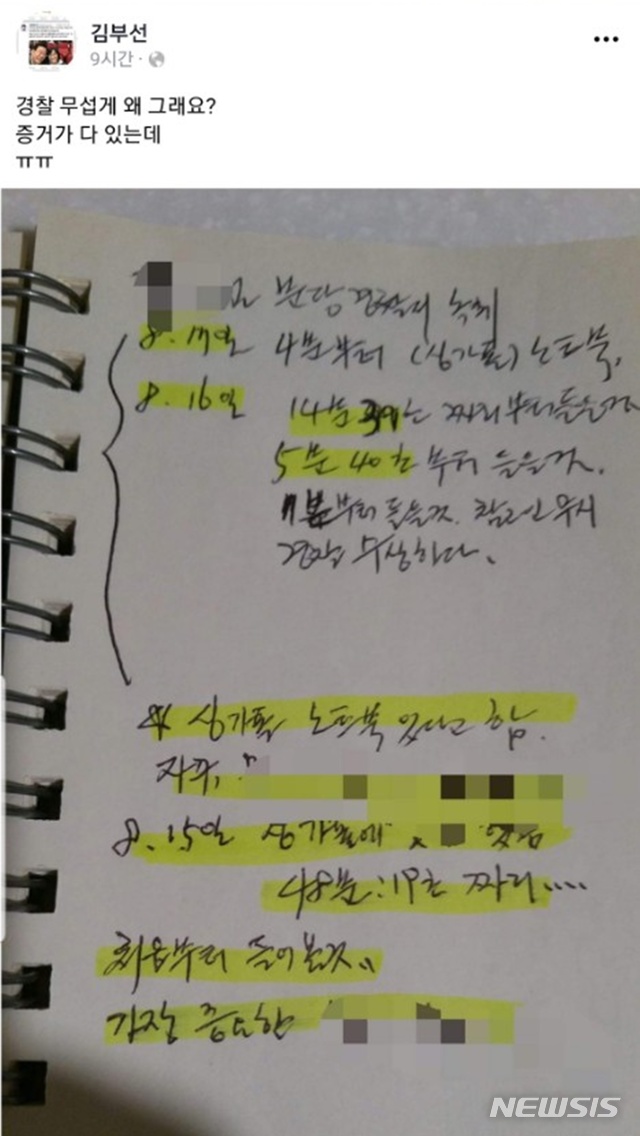 김부선
9시간
경찰 무섭게 왜 그래요?
증거가 다 있는데
ㅠㅠ
분당경찰의 녹취
8.17일 4분부터 (싱가폴) 노트북,
8.16일 14분 39초 짜리부터들을것
5분 40초부터 들을것.
11분부터 들을것. 참고인무시
경찰 수상하다.
싱가폴 노트북 있다고 함.
자꾸,
8.15일 싱가폴에 있음
48분:19초 짜리....
처음부터 들어볼것,,
가장 중요한
NEWSIS